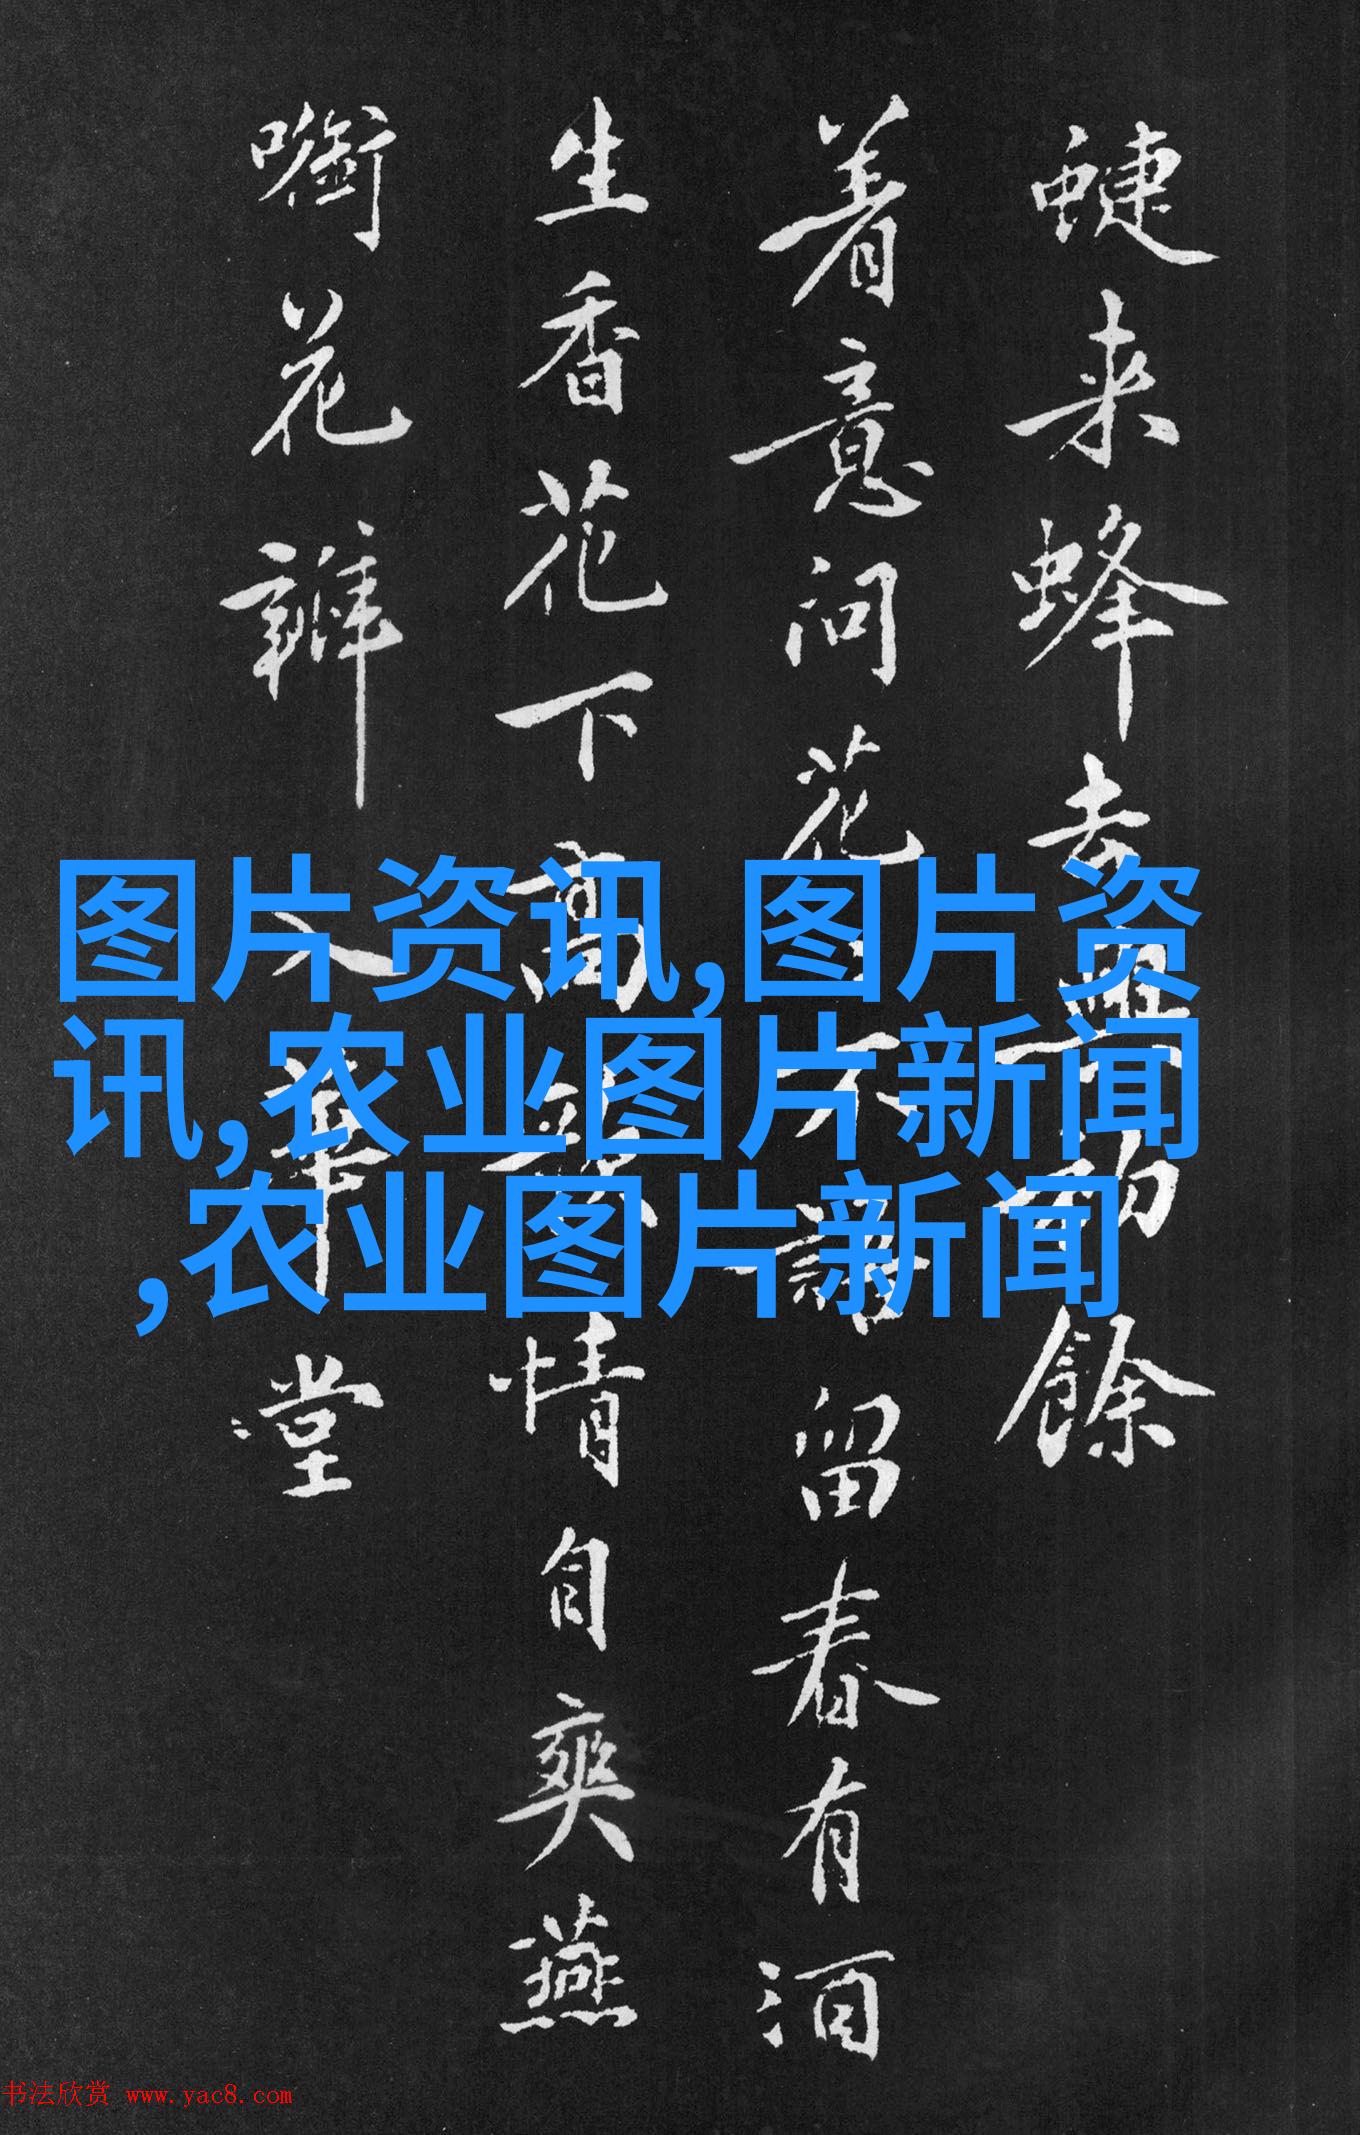 蜨来蜂去興初餘
着意问花不語留春有酒
生香花下高歌情自爽燕
花瓣入華堂
图片资讯,图片资
讯,农业图片新闻
,农业图片新闻
书法欣赏 www.yac8.com